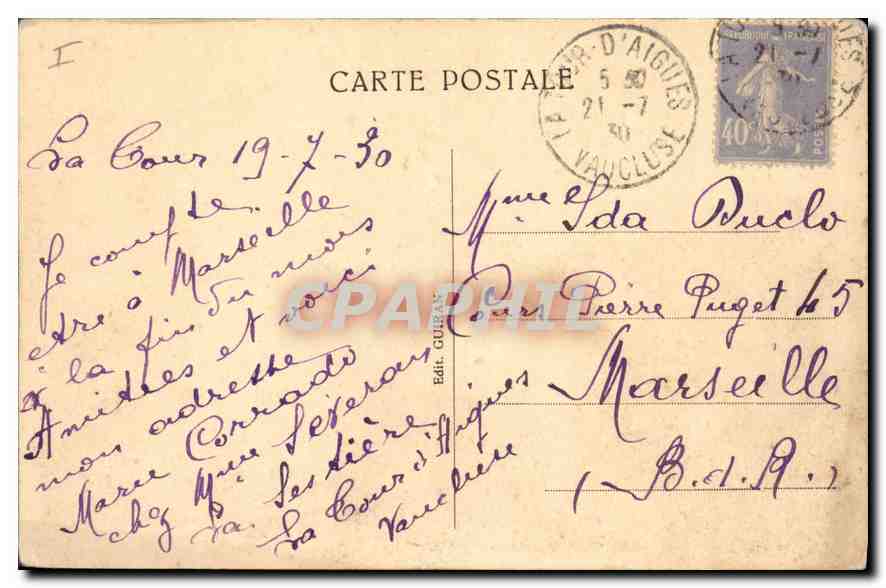 I
CARTE POSTALE
LA TOUR-D'AIGUES
5 30
21 -7
30
VAUCLUSE
REPUBLIQUE FRANCAISE
21 -7
40c
POSTES
La Tour 19-7-30
Je compte
être à Marseille
à la fin du mois
Amitiées et voici
mon adresse
Marie Corrado
chez Mme Séveran
La Sestière
La Tour d'Aigues
Vaucluse
Edit. GUIRAN
Mme Ida Duclo
Cours Pierre Puget 45
Marseille
(B.d.R.)
CPAPHIL